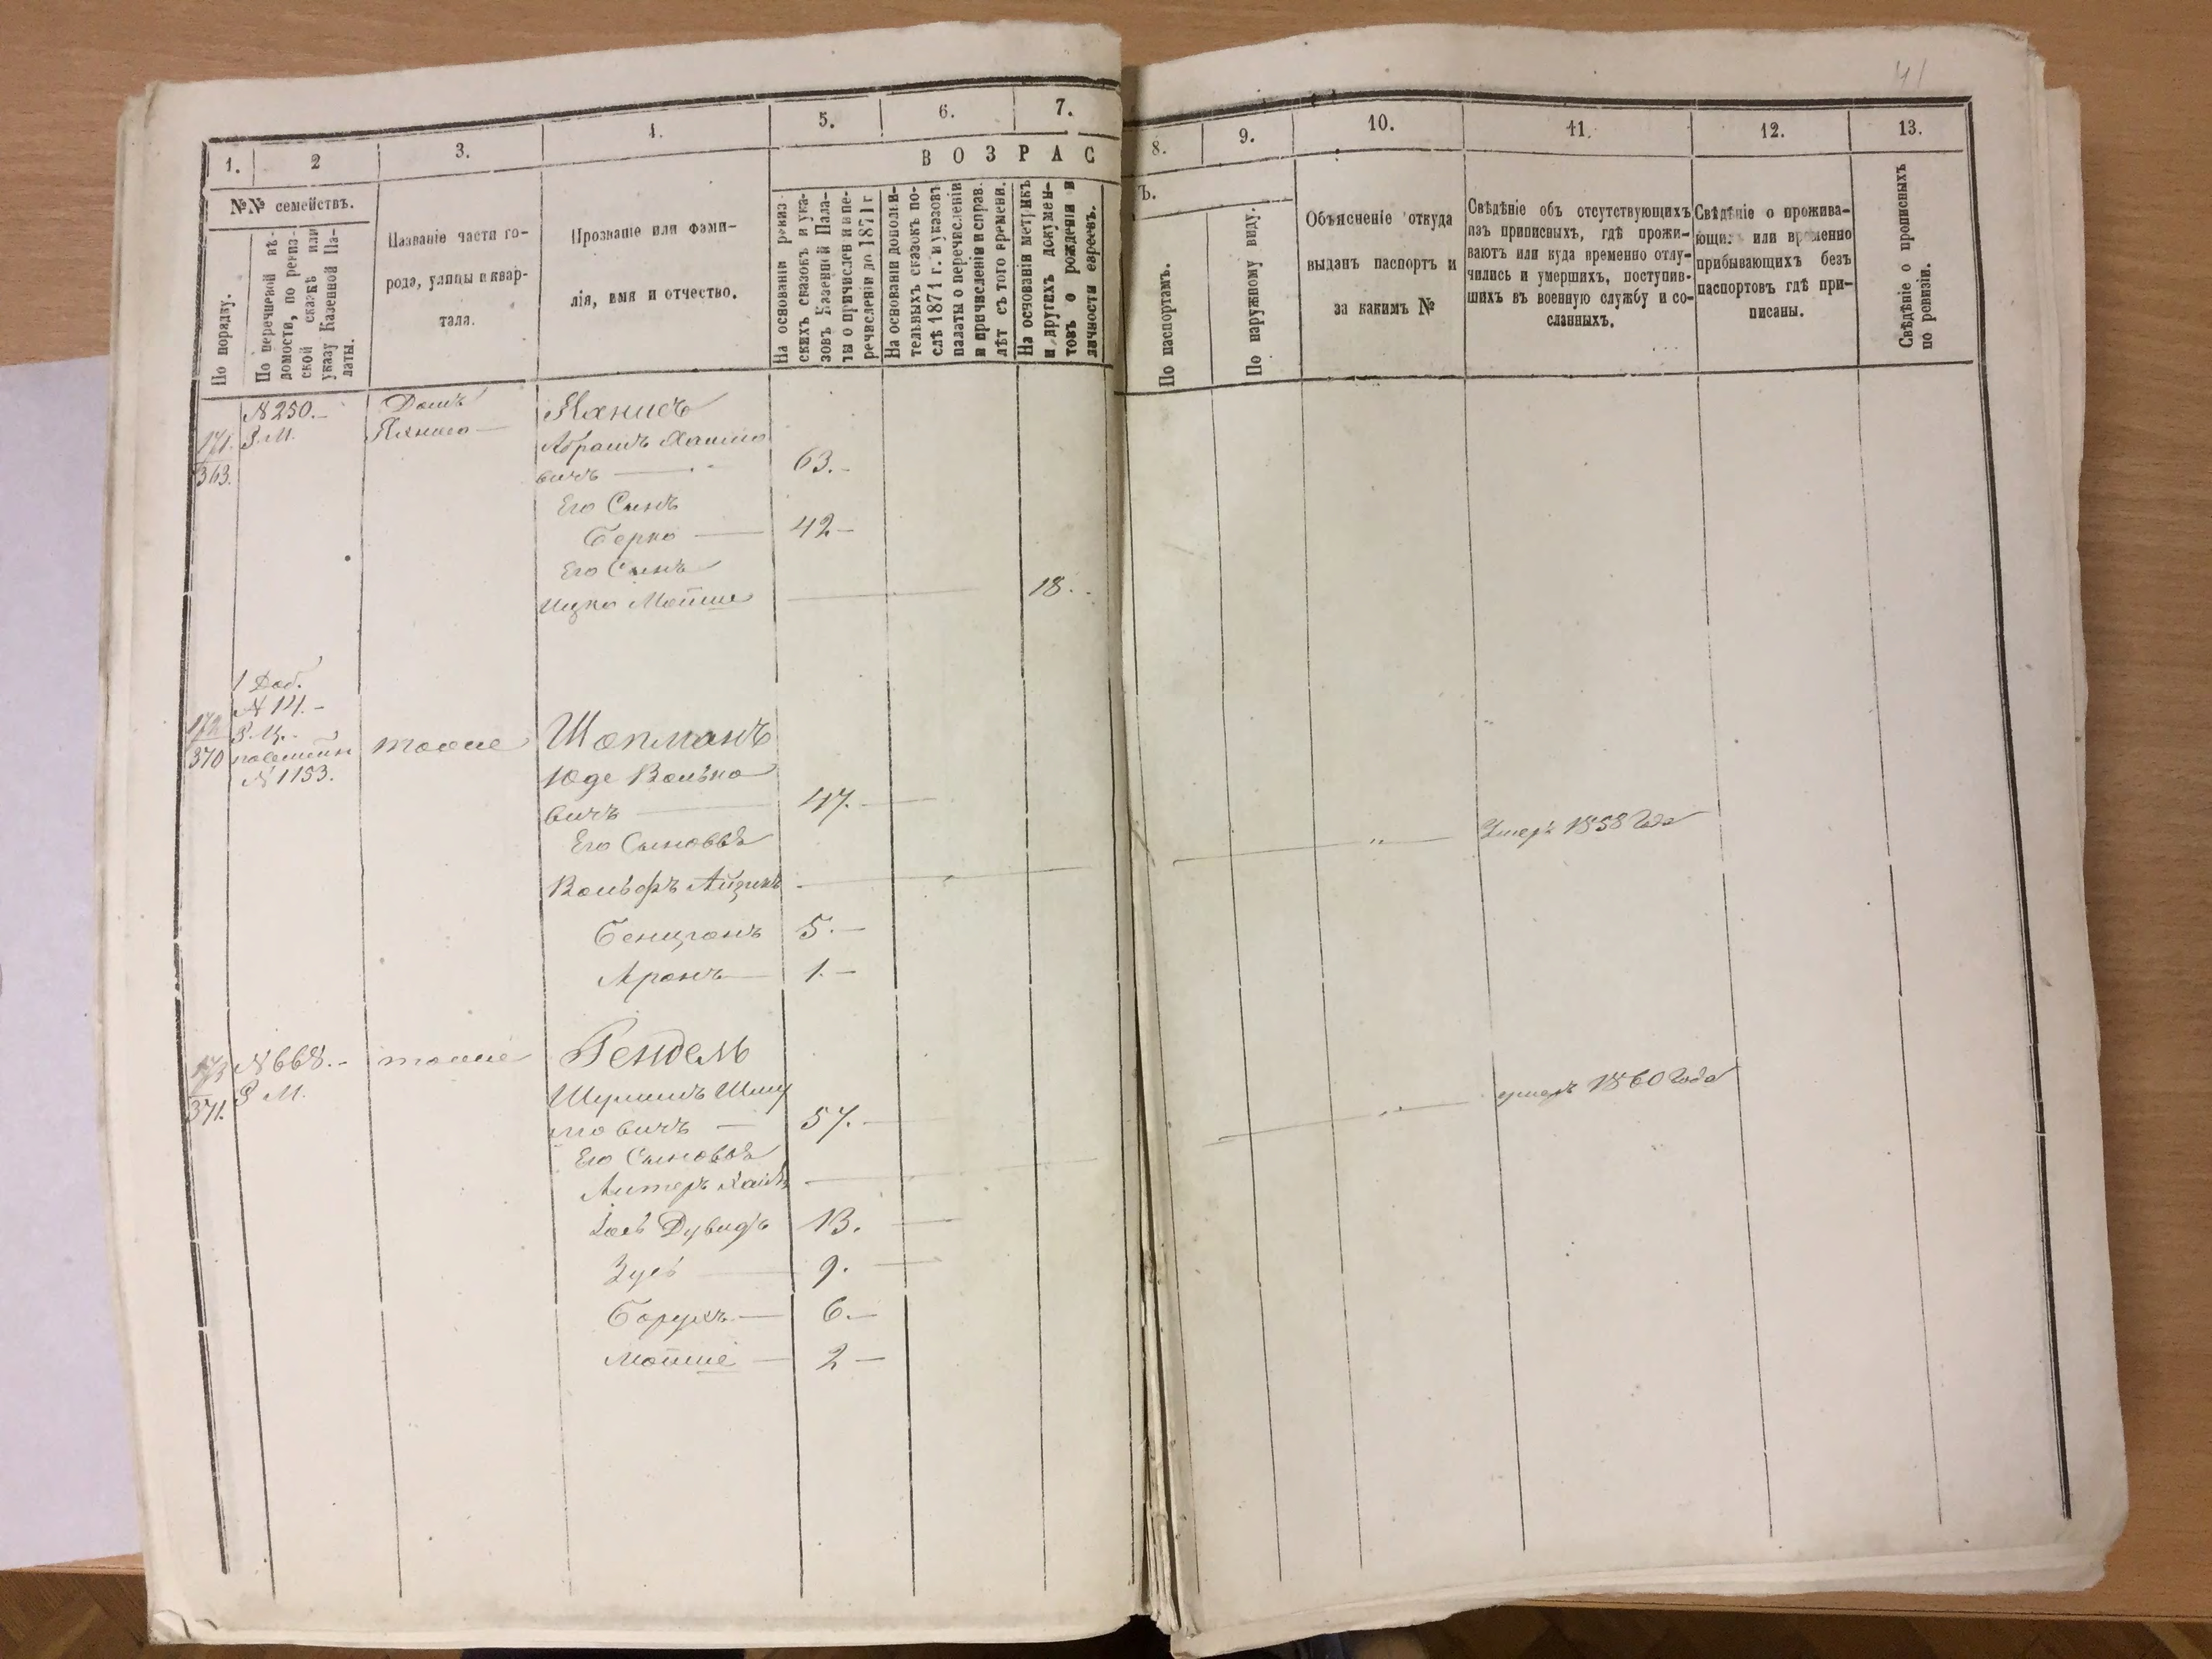 41
1.
2
3.
4.
5.
6.
7.
8.
9.
10.
11.
12.
13.
ВОЗРАС
Ъ.
№№ семействъ.
По порядку.
По перечневой вѣ-
домости, по ревиз-
ской сказкѣ или
указу Казенной Па-
латы.
Названіе части го-
рода, улицы и квар-
тала.
Прозваніе или фами-
лія, имя и отчество.
На основаніи ревиз-
скихъ сказокъ и ука-
зовъ Казенной Пала-
ты о причислен и и пе-
речисленіи до 1871 г
На основаніи дополни-
тельныхъ сказокъ по-
слѣ 1871 г. и указовъ
палаты о перечисленіи
и причисленіи и справ.
лѣт съ того времени.
На основаніи метрикъ
и другихъ докумен-
товъ о рожденіи и
личности евреевъ.
По паспортамъ.
По наружному виду.
Объясненіе откуда
выданъ паспортъ и
за какимъ №
Свѣдѣніе объ отсутствующихъ
изъ приписныхъ, гдѣ прожи-
ваютъ или куда временно отлу-
чились и умершихъ, поступив-
шихъ въ военную службу и со-
сланныхъ.
Свѣдѣніе о прожива-
ющихъ или временно
прибывающихъ безъ
паспортовъ гдѣ при-
писаны.
Свѣдѣніе о прописныхъ
по ревизіи.
171.
363.
N 250.-
Р. М.
Домъ
Абрамъ Хаимо
вичъ — 63.-
Его Сынъ
Берко — 42-
Его Сынъ
Ицко Мойше — 18.
1 Доб.
N 14.-
172
370
N 1153.
тоже
Шопманъ
Юде Волько
вичъ — 47. — " — Умеръ 1858 Года
Его Сыновья
Вольфъ Айзикъ -
Бенционъ 5.-
Аронъ — 1.-
173
371.
N 668.-
Р М.
тоже
Гендель
Шулимъ Шму
левичъ — 57. — " — умеръ 1860 Года
Его Сыновья
Алтеръ Хаимъ —
Іось Дувидъ 13.
Зусь — 9.
Борухъ — 6.-
Мойше — 2-